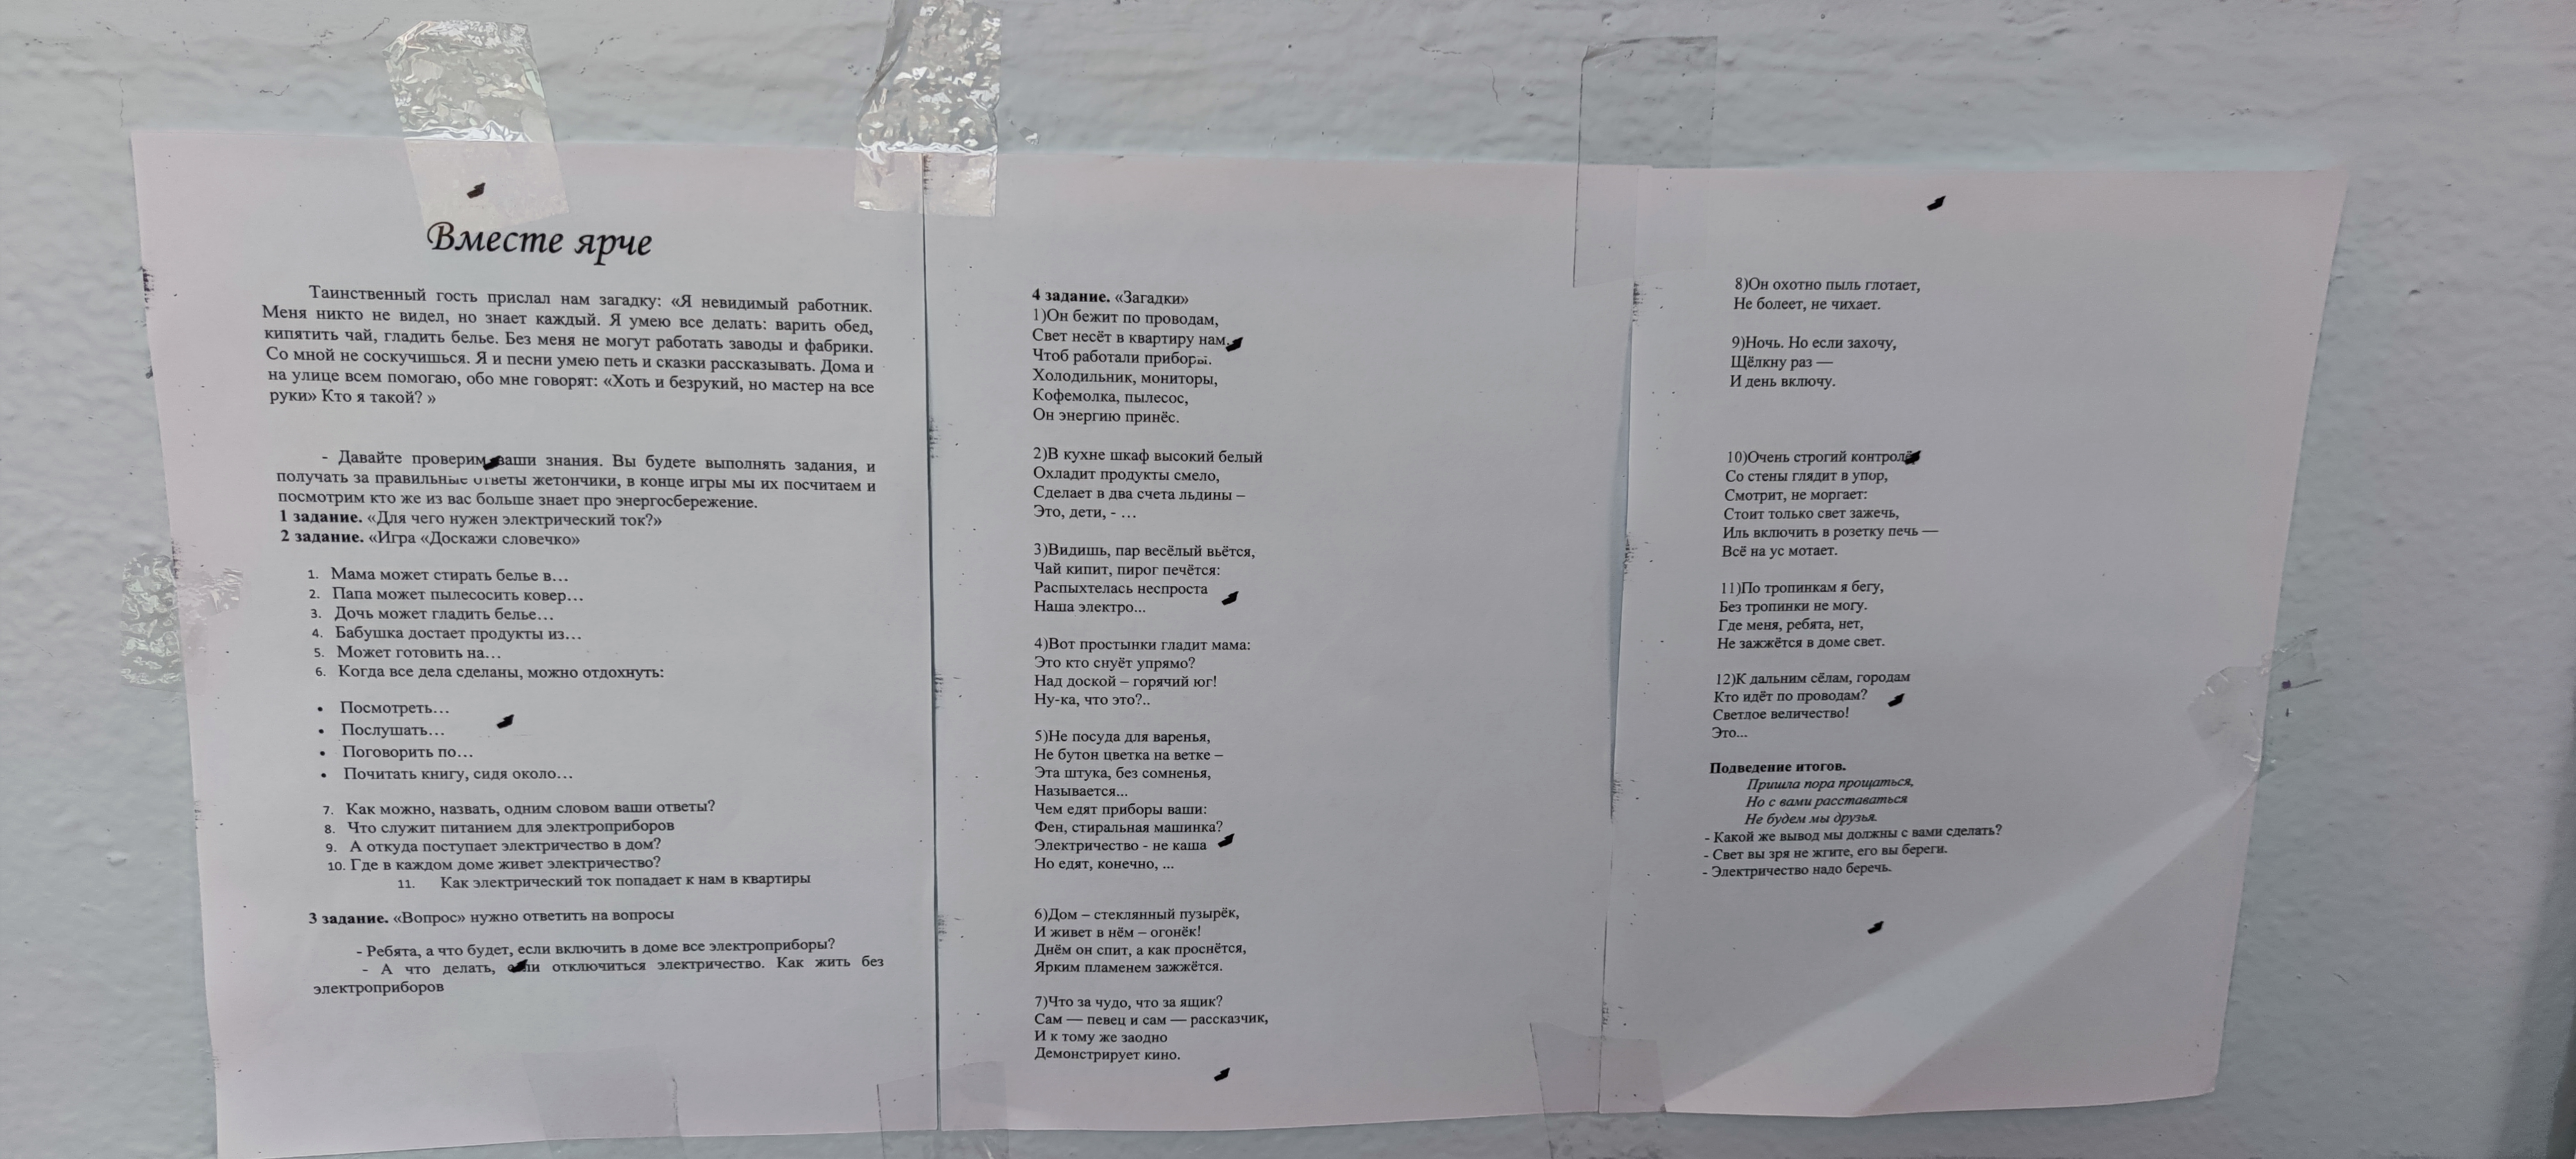 Вместе ярче
Таинственный гость прислал нам загадку: «Я невидимый работник.
Меня никто не видел, но знает каждый. Я умею все делать: варить обед,
кипятить чай, гладить белье. Без меня не могут работать заводы и фабрики.
Со мной не соскучишься. Я и песни умею петь и сказки рассказывать. Дома и
на улице всем помогаю, обо мне говорят: «Хоть и безрукий, но мастер на все
руки» Кто я такой? »
- Давайте проверим ваши знания. Вы будете выполнять задания, и
получать за правильные ответы жетончики, в конце игры мы их посчитаем и
посмотрим кто же из вас больше знает про энергосбережение.
1 задание. «Для чего нужен электрический ток?»
2 задание. «Игра «Доскажи словечко»
1. Мама может стирать белье в…
2. Папа может пылесосить ковер…
3. Дочь может гладить белье…
4. Бабушка достает продукты из…
5. Может готовить на…
6. Когда все дела сделаны, можно отдохнуть:
• Посмотреть…
• Послушать…
• Поговорить по…
• Почитать книгу, сидя около…
7. Как можно, назвать, одним словом ваши ответы?
8. Что служит питанием для электроприборов
9. А откуда поступает электричество в дом?
10. Где в каждом доме живет электричество?
11. Как электрический ток попадает к нам в квартиры
3 задание. «Вопрос» нужно ответить на вопросы
- Ребята, а что будет, если включить в доме все электроприборы?
- А что делать, если отключиться электричество. Как жить без
электроприборов
4 задание. «Загадки»
1)Он бежит по проводам,
Свет несёт в квартиру нам.
Чтоб работали приборы.
Холодильник, мониторы,
Кофемолка, пылесос,
Он энергию принёс.
2)В кухне шкаф высокий белый
Охладит продукты смело,
Сделает в два счета льдины –
Это, дети, - …
3)Видишь, пар весёлый вьётся,
Чай кипит, пирог печётся:
Распыхтелась неспроста
Наша электро...
4)Вот простынки гладит мама:
Это кто снуёт упрямо?
Над доской – горячий юг!
Ну-ка, что это?..
5)Не посуда для варенья,
Не бутон цветка на ветке –
Эта штука, без сомненья,
Называется...
Чем едят приборы ваши:
Фен, стиральная машинка?
Электричество - не каша
Но едят, конечно, ...
6)Дом – стеклянный пузырёк,
И живет в нём – огонёк!
Днём он спит, а как проснётся,
Ярким пламенем зажжётся.
7)Что за чудо, что за ящик?
Сам — певец и сам — рассказчик,
И к тому же заодно
Демонстрирует кино.
8)Он охотно пыль глотает,
Не болеет, не чихает.
9)Ночь. Но если захочу,
Щёлкну раз —
И день включу.
10)Очень строгий контролёр
Со стены глядит в упор,
Смотрит, не моргает:
Стоит только свет зажечь,
Иль включить в розетку печь —
Всё на ус мотает.
11)По тропинкам я бегу,
Без тропинки не могу.
Где меня, ребята, нет,
Не зажжётся в доме свет.
12)К дальним сёлам, городам
Кто идёт по проводам?
Светлое величество!
Это...
Подведение итогов.
Пришла пора прощаться,
Но с вами расставаться
Не будем мы друзья.
- Какой же вывод мы должны с вами сделать?
- Свет вы зря не жгите, его вы береги.
- Электричество надо беречь.